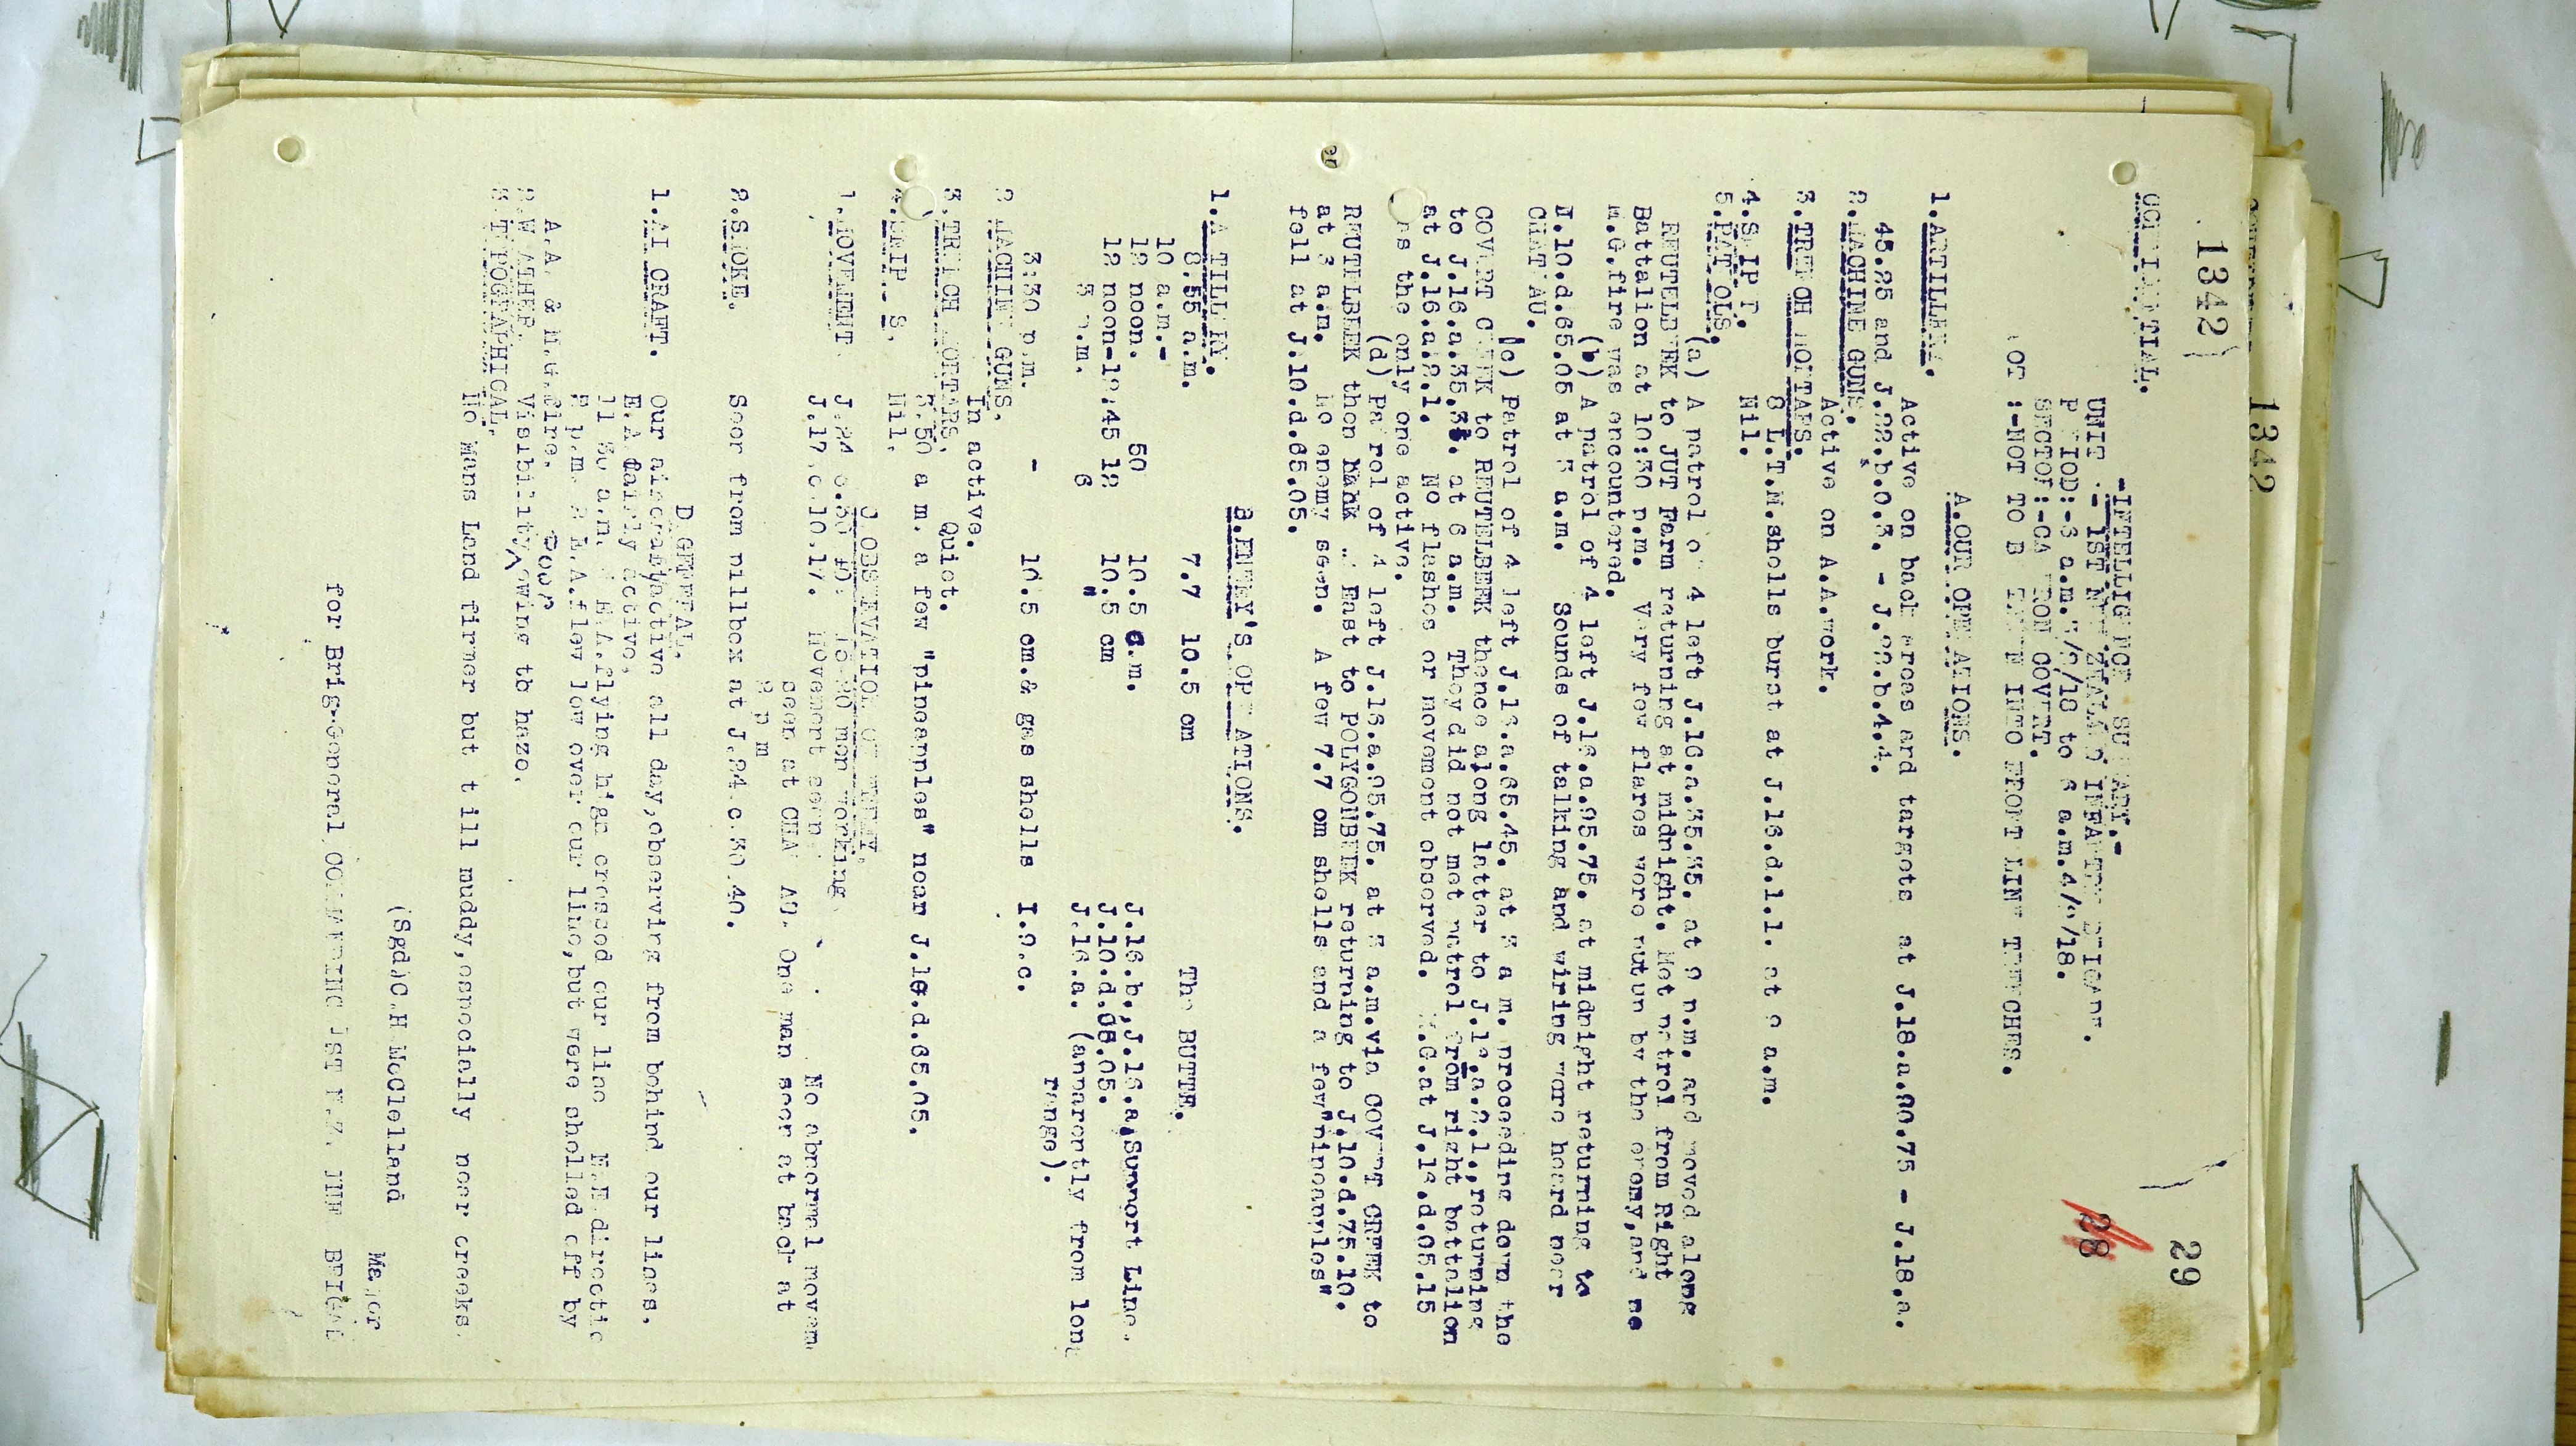 1342
1342
29
28
-INTELLIGENCE SUMMARY.-
UNIT :- 1ST NEW ZEALAND INFANTRY BRIGADE.
PERIOD:-6 a.m. 3/2/18 to 6 a.m. 4/2/18.
SECTOR:-CAMERON COVERT.
NOT TO BE TAKEN INTO FRONT LINE TRENCHES.
A.OUR OPERATIONS.
1.ARTILLERY.
Active on back areas and targets at J.18.a.80.75 - J.18.a.
45.25 and J.22.b.0.3. - J.22.b.4.4.
2.MACHINE GUNS.
Active on A.A.work.
3.TRENCH MORTARS.
8 L.T.M.shells burst at J.16.d.1.1. at 9 a.m.
4.SNIPING.
Nil.
5.PATROLS.
(a) A patrol of 4 left J.16.a.35.35. at 9 p.m. and moved along
REUTELBEEK to JUT Farm returning at midnight. Met patrol from Right
Battalion at 10:30 p.m. Very few flares were put up by the enemy,and no
M.G.fire was encountered.
(b) A patrol of 4 left J.16.a.95.75. at midnight returning to
J.10.d.65.05 at 3 a.m. Sounds of talking and wiring were heard near
CHATEAU.
(c) Patrol of 4 left J.16.a.65.45. at 3 a m. proceeding down the
COVERT CREEK to REUTELBEEK thence along latter to J.16.a.2.1.,returning
to J.16.a.35.35. at 6 a.m. They did not met patrol from right battalion
at J.16.a.2.1. No flashes or movement observed. M.G.at J.16.d.05.15
was the only one active.
(d) Patrol of 4 left J.16.a.95.75. at 3 a.m.via COVERT CREEK to
REUTELBEEK then East to POLYGONBEEK returning to J.10.d.75.10.
at 3 a.m. No enemy seen. A few 7.7 cm shells and a few"pineapples"
fell at J.10.d.65.05.
B.ENEMY'S OPERATIONS.
1.ARTILLERY.
8.55 a.m. 7.7 10.5 cm The BUTTE.
10 a.m.-
12 noon. 50 10.5 c.m. J.16.b.,J.16.a.Support Line.
12 noon-12:45 12 10.5 cm J.10.d.08.05.
3 p.m. 6 " J.16.a. (apparently from long
range).
3:30 p.m. - 10.5 cm.& gas shells I.9.c.
2 MACHINE GUNS.
In active.
3.TRENCH MORTARS. Quiet.
3.50 a m. a few "pineapples" near J.10.d.65.05.
Nil.
C OBSERVATION OF ENEMY.
1.MOVEMENT
J.17.c.10.17. Movement seen No abnormal movem
seen at CHATEAU. One man seen at
2 p m
2.SMOKE. Seen from pillbox at J.24.c.30.40.
D.GENERAL.
1.AIRCRAFT. Our aircraft active all day,observing from behind our lines.
E.A fairly active,
11 30 a.m. E.A.flying high crossed our line
E.A.flew low over our line,but were shelled off by
A.A. & M.G.fire.
2.WEATHER. Visibility poor owing to haze.
3.TOPOGRAPHICAL.
No Mans Land firmer but till muddy,especially near creeks.
(Sgd)C.H McClelland
Major
for Brig-General COMMANDING 1ST N.Z. INF BRIGADE